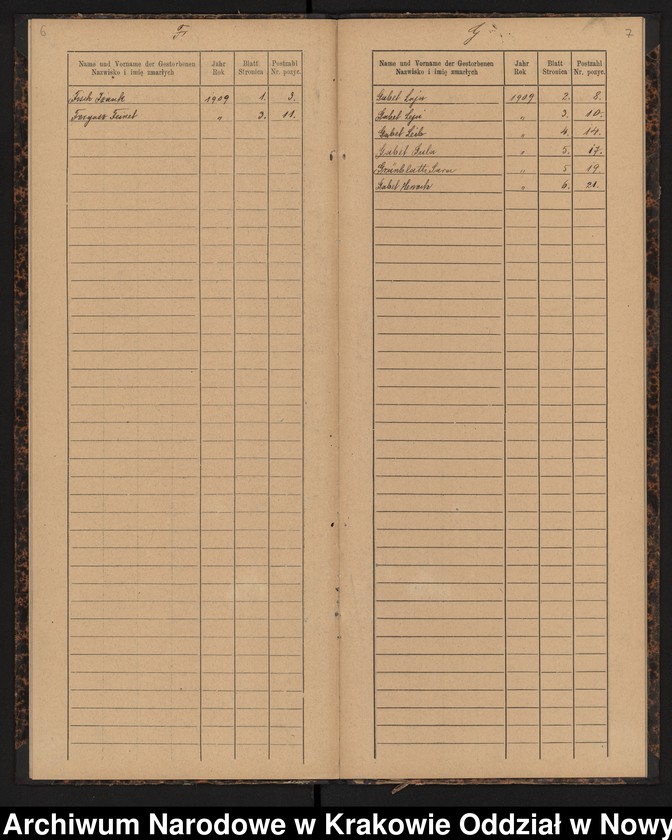 6
F
Name und Vorname der Gestorbenen
Nazwisko i imię zmarłych
Jahr
Rok
Blatt
Stronica
Postzahl
Nr. pozyc.
1909 1. 3.
" 3. 11.
7
G
Name und Vorname der Gestorbenen
Nazwisko i imię zmarłych
Jahr
Rok
Blatt
Stronica
Postzahl
Nr. pozyc.
Gabel 1909 2. 8.
Gabel " 3. 10.
Gabel " 4. 14.
Gabel " 5. 17.
Grünblatt " 5 19.
Gabel Hersch " 6. 21.
Archiwum Narodowe w Krakowie Oddział w Nowy